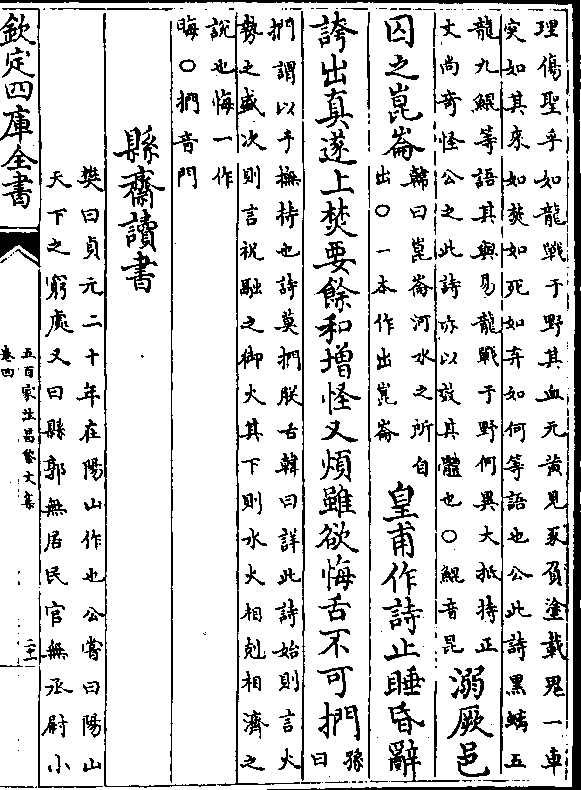 理傷聖乎如龍戰于野其血元黃見豕負塗載鬼一車
突如其來如焚如死如弃如何等語也公此詩黑螭五
龍九鯤等語其與易龍戰于野何異大抵持正
文尚奇怪公之此詩亦以效其體也○鯤音昆
溺厥邑
囚之崑崙
韓曰崑崙河水之所自
出○一本作出崑崙
皇甫作詩止睡昏辭
誇出真遂上焚要餘和增怪又煩雖欲悔舌不可捫
孫曰
捫謂以手撫持也詩莫捫朕舌韓曰詳此詩始則言火
勢之盛次則言祝融之御火其下則水火相剋相濟之
說也悔一作
晦○捫音門
縣齋讀書
樊曰貞元二十年在陽山作也公嘗曰陽山
天下之窮處又曰縣郭無居民官無丞尉小
欽定四庫全書
五百家注昌黎文集
卷四
二十一